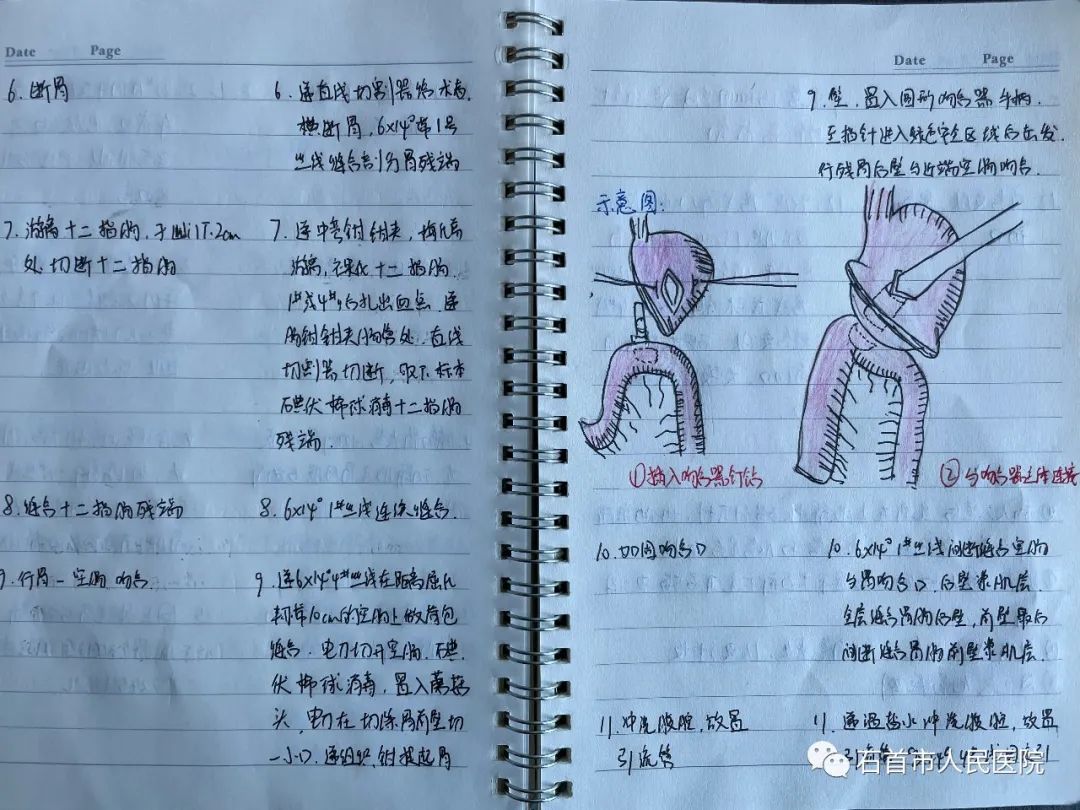 Date Page
6.断胃
6.递直线切割器给术者.
横断胃,6x14°带1号
丝线缝合部分胃残端
7.游离十二指肠,于幽门下2cm
处切断十二指肠
7.递中弯钳钳夹,梅氏剪
游离,裸化十二指肠.
1#或4#
结扎出血点.递
肠钳钳夹
吻合处.直线
切割器切断,取下标本
碘伏棉球消毒十二指肠
残端.
8.缝合十二指肠残端
8.6x14° 1#丝线连续缝合.
9.行胃-空肠吻合
9.递6x14°4#丝线在距离屈氏
韧带10cm的空肠上做荷包
缝合.电刀切开空肠.碘
伏棉球消毒,置入蘑菇
头,电刀在切除胃前壁切
一小口.递组织钳提起胃
Date Page
9.壁,置入圆形吻合器手柄.
至指针进入绿色安全区域后击发.
行残胃后壁与近端空肠吻合.
示意图:
①插入吻合器钉钻
②与吻合器主体连接
10.加固吻合口
10.6x14° 1#丝线间断缝合空肠
与胃吻合口.后壁浆肌层
全层缝合胃肠后壁,前壁最后
间断缝合胃肠前壁浆肌层.
11.冲洗腹腔,放置
引流管
11.递温盐水冲洗腹腔,放置
引流管
石首市人民医院